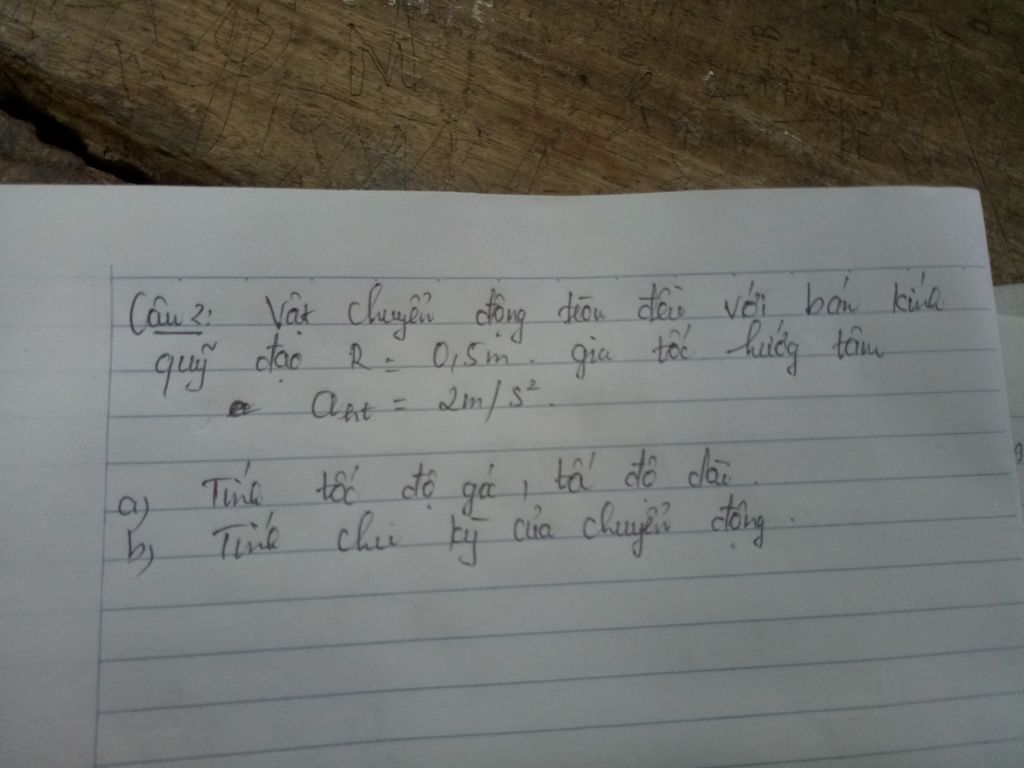 Câu 2: Vật chuyển động tròn đều với bán kính
quỹ đạo R = 0,5m. gia tốc hướng tâm
aht = 2m/s².
a) Tính tốc độ góc, tốc độ dài.
b) Tính chu kỳ của chuyển động.